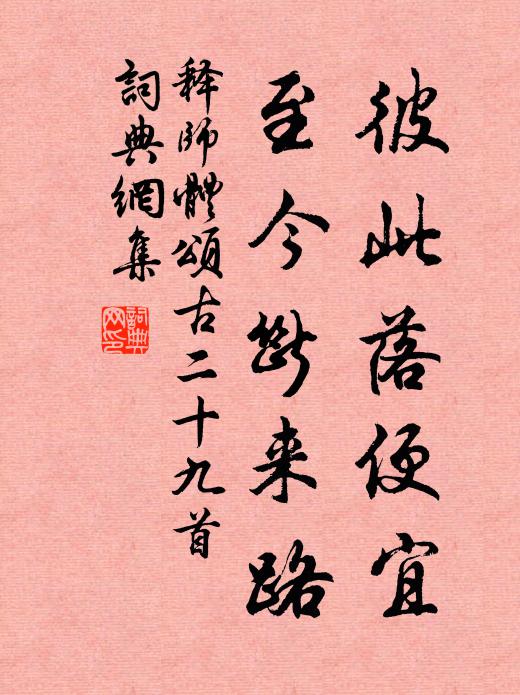 彼此落便宜
至今斷来路
释師體頌古二十九首
詞典網集
詞典网印